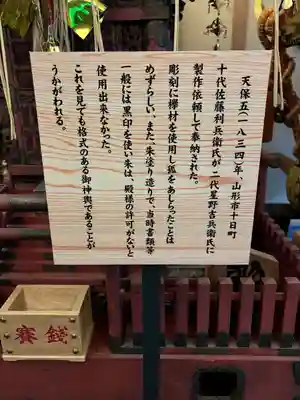 天保五(一八三四)年、山形市十日町
十代佐藤利兵衛氏が二代星野吉兵衛氏に
製作依頼して奉納された。
彫刻に欅材を使用し狐をあしらったことは
めずらしい、また、朱塗り造りで、当時書類等
一般には黒印を使い朱は、殿様の許可がないと
使用出来なかった。
これを見ても格式のある御神輿であることが
うかがわれる。
賽銭